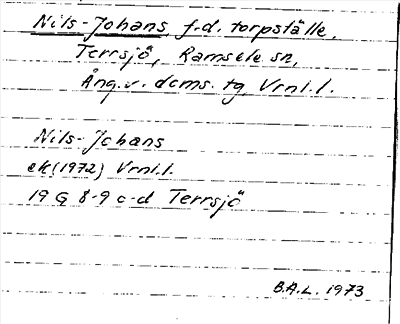 Nils-Johans f.d. torpställe,
Terrsjö, Ramsele sn,
Ång.v. dcms. tg, Vrnl.l.
Nils-Johans
ek(1972) Vrnl.l.
19 G 8-9 c-d Terrsjö
B.A.L. 1973